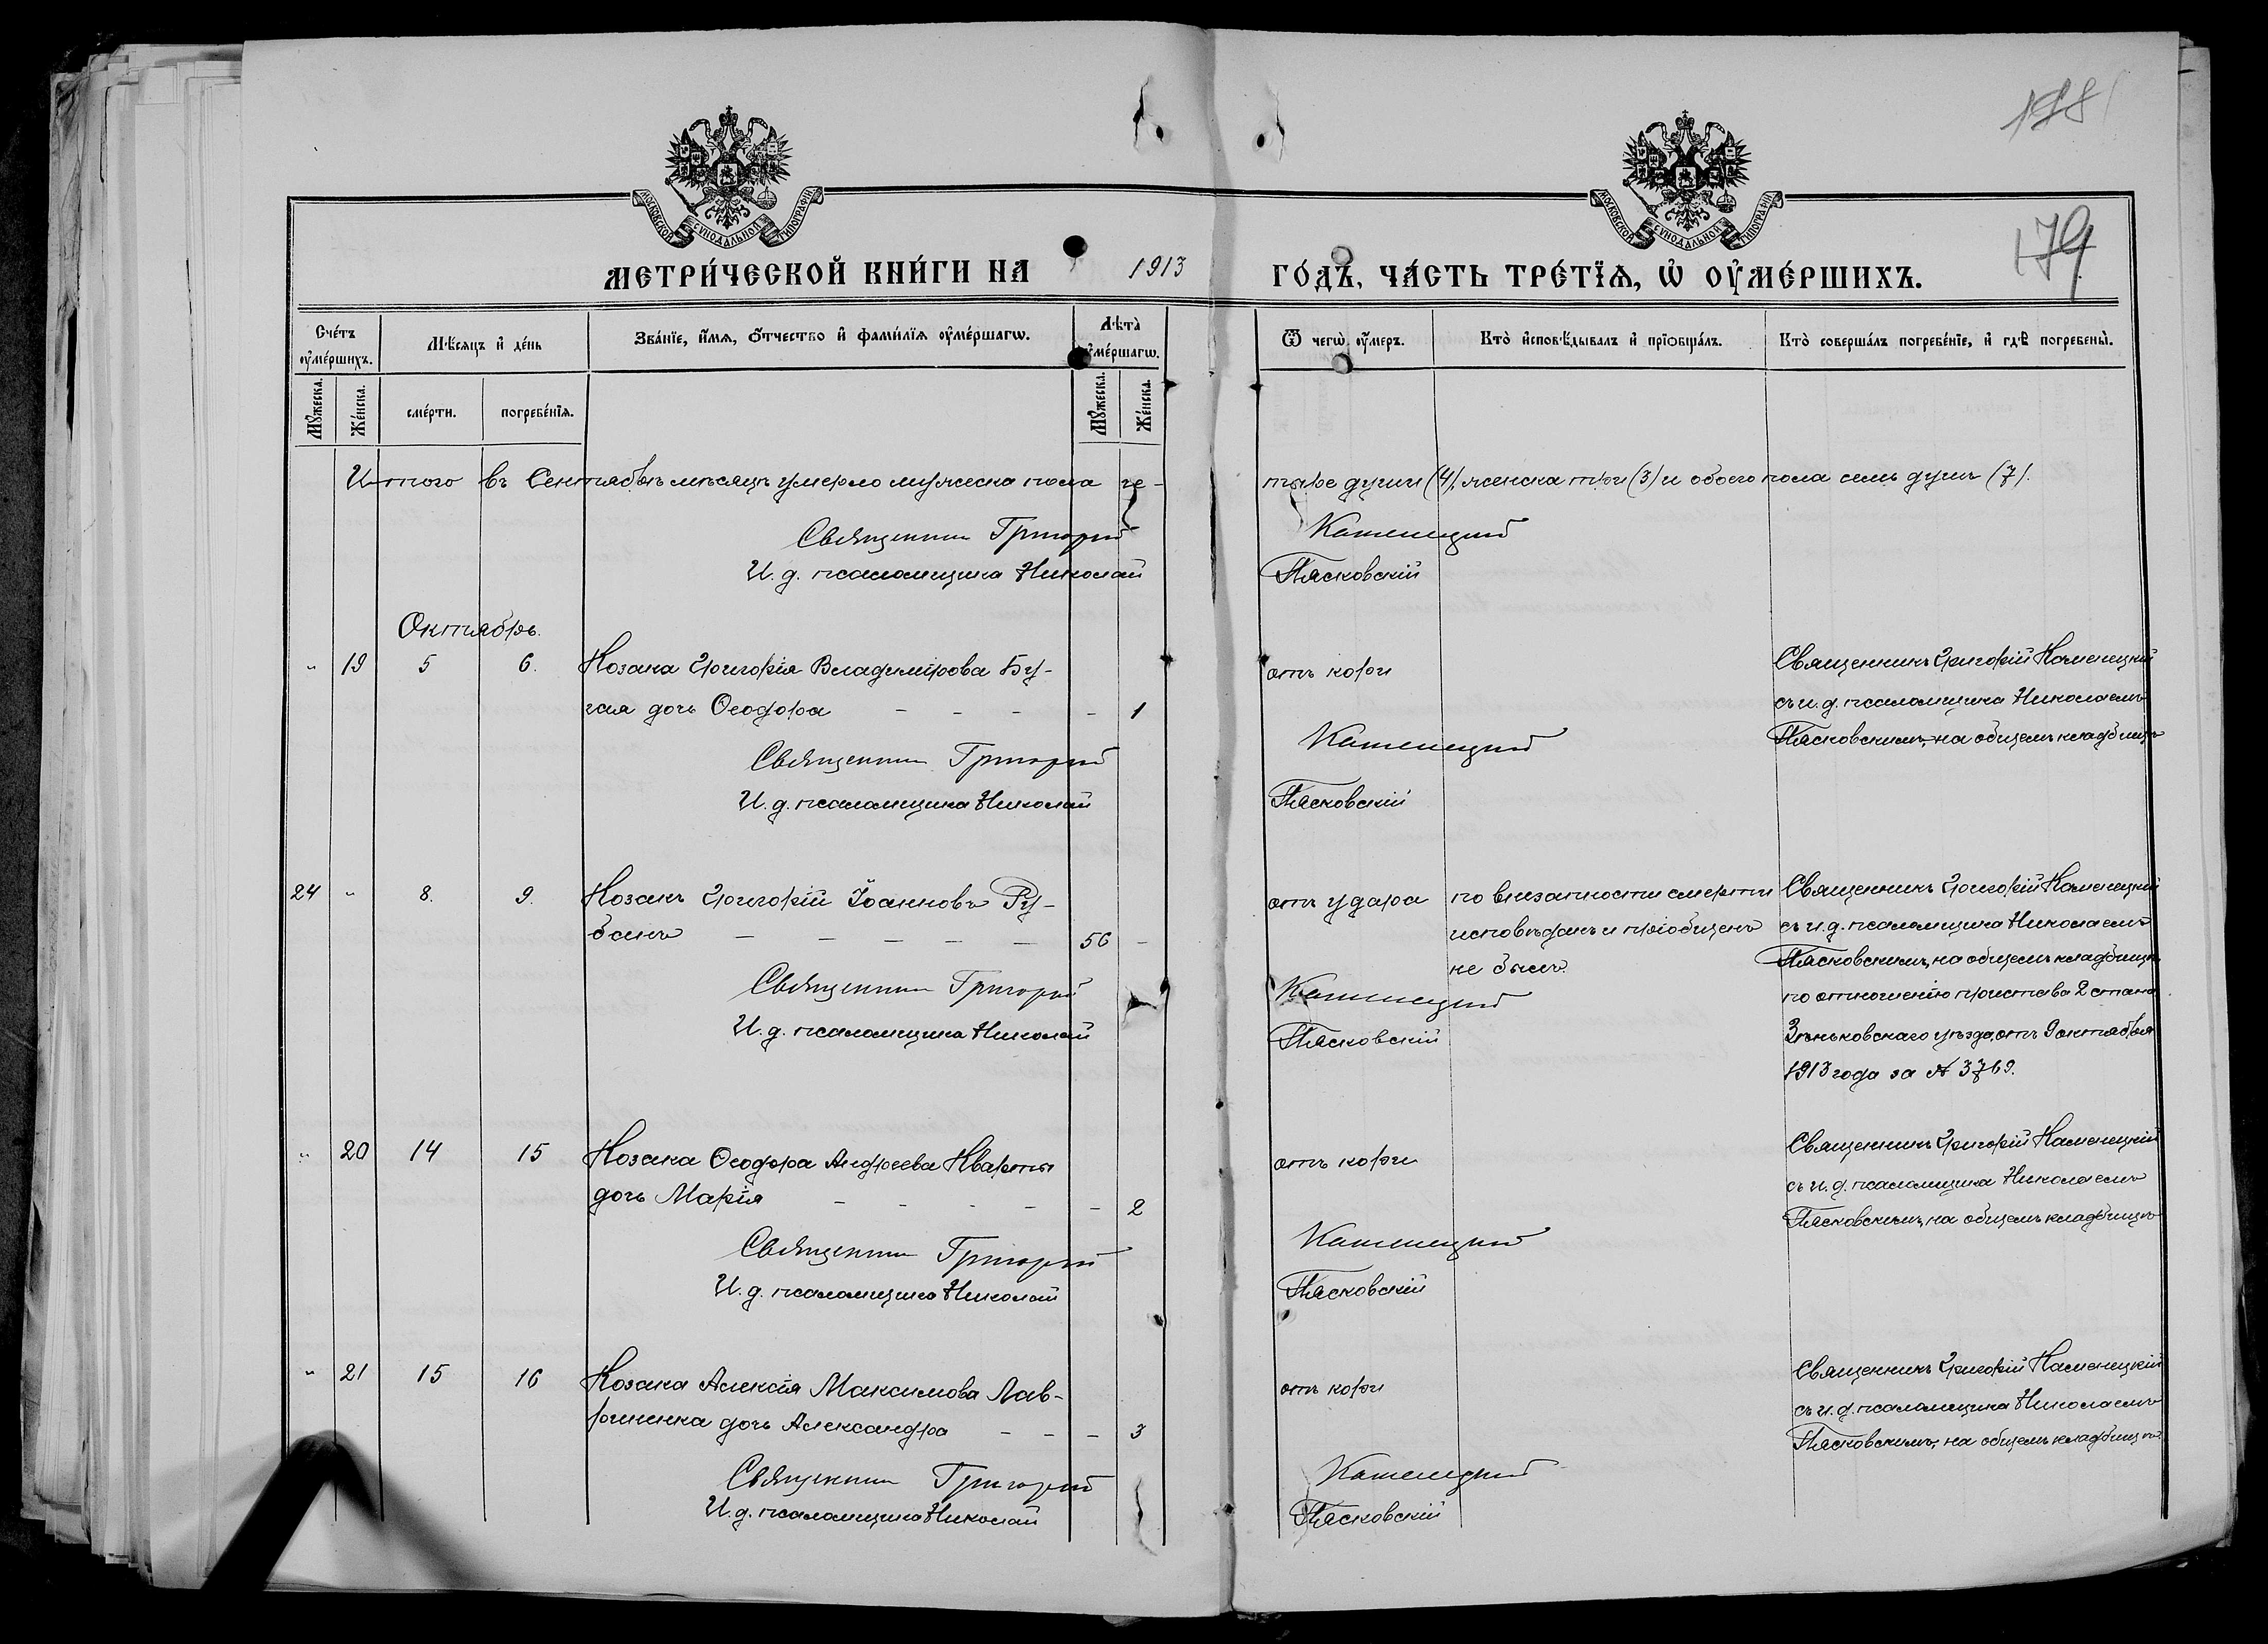 188
МОСКОВСКОЙ СѴНОДАЛЬНОЙ ТИПОГРАФІИ
МОСКОВСКОЙ СѴНОДАЛЬНОЙ ТИПОГРАФІИ
179
МЕТРИ́ЧЕСКОЙ КНИ́ГИ НА 1913 ГО́ДЪ, ЧА́СТЬ ТРЕ́ТЇѦ, Ѡ҆ ОУ҆МЕ́РШИХЪ.
Сче́тъ оу҆ме́ршихъ.
Мѣ́сѧцъ и҆ де́нь
Зва́нїе, и҆́мѧ, ѻ҆́тчество и҆ фами́лїѧ оу҆ме́ршагѡ.
Лѣ́та оу҆ме́ршагѡ.
Ѿ чегѡ̀ оу҆́меръ.
Кто̀ и҆сповѣ́дывалъ и҆ прїѡбща́лъ.
Кто̀ соверша́лъ погребе́нїе, и҆ гдѣ̀ погребены̀.
Мꙋ́жеска. Же́нска. сме́рти. погребе́нїѧ. Мꙋ́жеска. Же́нска.
Итого въ Сентябрѣ мѣсяцѣ умерло мужеска пола че-
тыре души (4), женска три (3) и обоего пола семь душъ (7).
Священникъ Григорій Каменецкій
И. д. псаломщика Николай Пясковскій
Октябрь.
" 19 5 6. Козака Григорія Владимірова Бу-
гая дочь Ѳеодора - - - - 1
отъ кори
Священникъ Григорій Каменецкій
съ и. д. псаломщика Николаемъ
Пясковскимъ, на общемъ кладбищѣ
Священникъ Григорій Каменецкій
И. д. псаломщика Николай Пясковскій
24 " 8. 9. Козакъ Григорій Іоанновъ Ру-
банъ - - - - - 56 -
отъ удара
по внезапности смерти
исповѣданъ и пріобщенъ
не былъ.
Священникъ Григорій Каменецкій
съ и. д. псаломщика Николаемъ
Пясковскимъ, на общемъ кладбищѣ
по отношенію пристава 2 стана
Зѣньковскаго уѣзда, отъ 9 октября
1913 года за № 3769.
Священникъ Григорій Каменецкій
И. д. псаломщика Николай Пясковскій
" 20 14 15 Козака Ѳеодора Андреева Кварты
дочь Марія - - - - - 2
отъ кори
Священникъ Григорій Каменецкій
съ и. д. псаломщика Николаемъ
Пясковскимъ, на общемъ кладбищѣ
Священникъ Григорій Каменецкій
И. д. псаломщика Николай Пясковскій
" 21 15 16 Козака Алексія Максимова Лав-
риненка дочь Александра - - - 3
отъ кори
Священникъ Григорій Каменецкій
съ и. д. псаломщика Николаемъ
Пясковскимъ, на общемъ кладбищѣ
Священникъ Григорій Каменецкій
И. д. псаломщика Николай Пясковскій